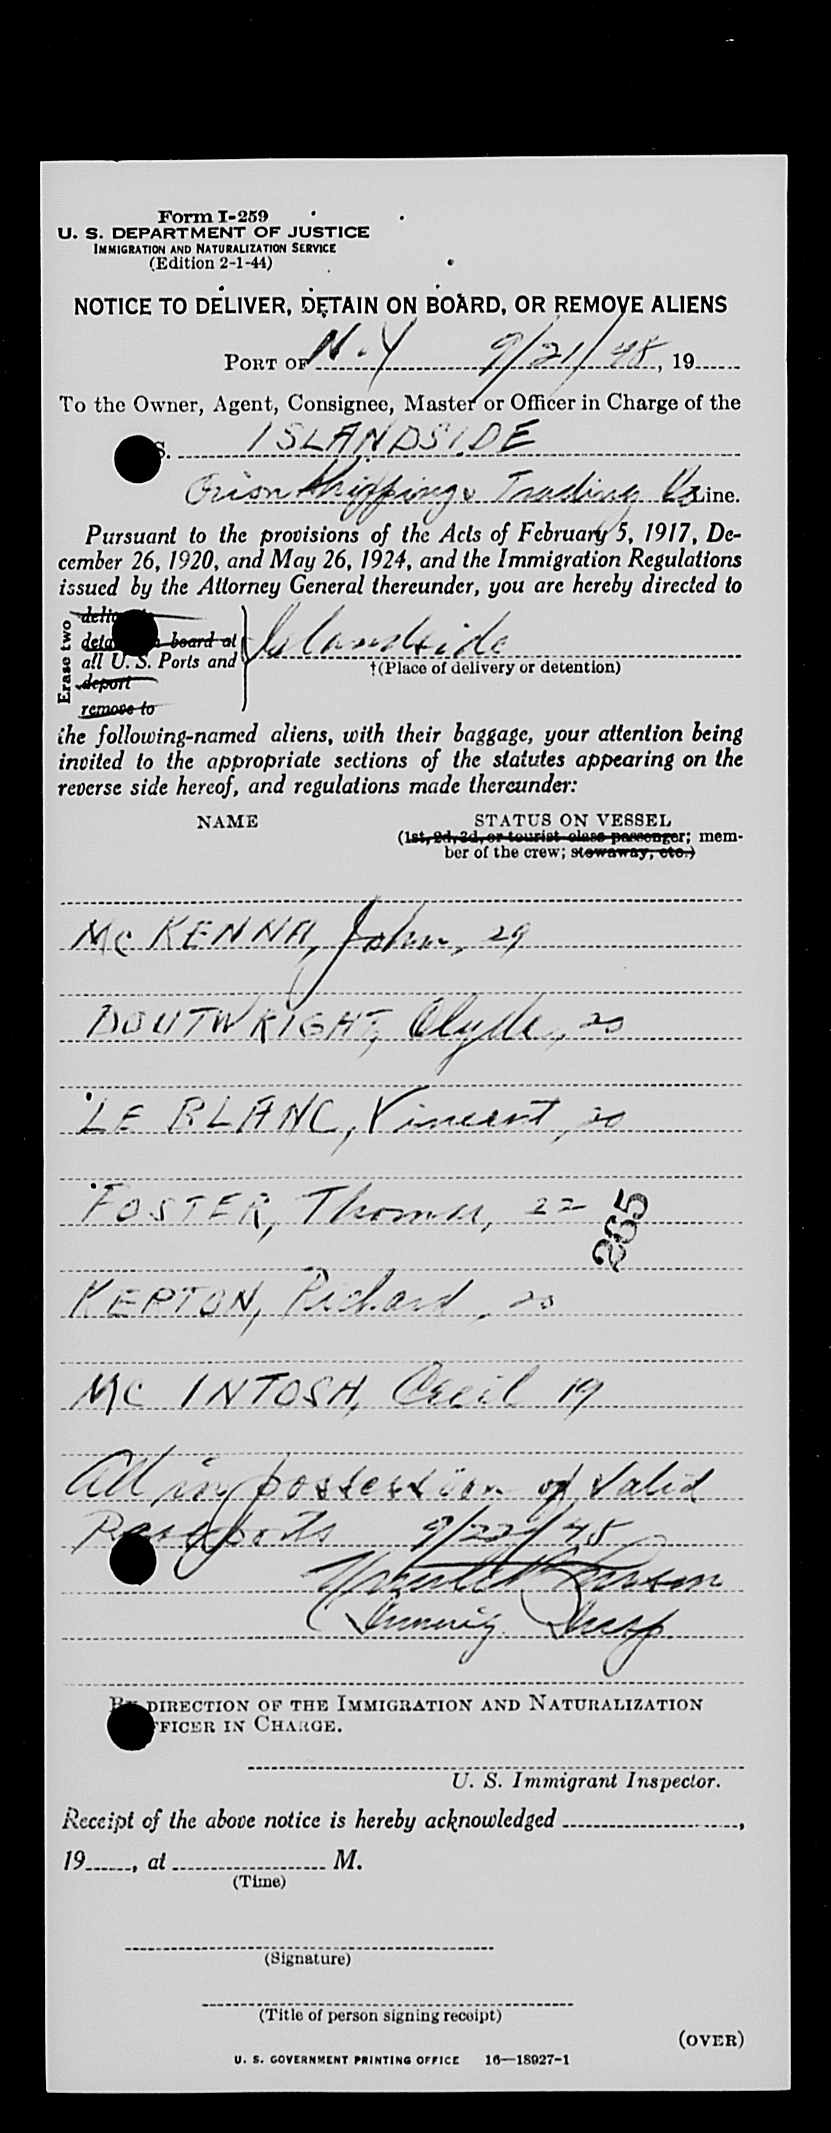 Form I-259
U. S. DEPARTMENT OF JUSTICE
IMMIGRATION AND NATURALIZATION SERVICE
(Edition 2-1-44)
NOTICE TO DELIVER, DETAIN ON BOARD, OR REMOVE ALIENS
PORT OF N.Y 9/21/48, 19
To the Owner, Agent, Consignee, Master or Officer in Charge of the
S. ISLANDSIDE
Orion Shipping & Trading Co Line.
Pursuant to the provisions of the Acts of February 5, 1917, De-
cember 26, 1920, and May 26, 1924, and the Immigration Regulations
issued by the Attorney General thereunder, you are hereby directed to
Erase two
board at Islandside
all U. S. Ports and
†(Place of delivery or detention)
deport
remove to
the following-named aliens, with their baggage, your attention being
invited to the appropriate sections of the statutes appearing on the
reverse side hereof, and regulations made thereunder:
NAME STATUS ON VESSEL
(1st, 2d, 3d, or tourist class passenger; mem-
ber of the crew; stowaway, etc.)
Mc KENNA, John, 29
BOUTWRIGHT, Clyde, 20
LE BLANC, Vincent, 20
FOSTER, Thomas, 22
265
KEPTON, Richard, 20
Mc INTOSH, Cecil 19
All in possession of valid
Passports 9/22/48
Immig. Insp.
BY DIRECTION OF THE IMMIGRATION AND NATURALIZATION
OFFICER IN CHARGE.
U. S. Immigrant Inspector.
Receipt of the above notice is hereby acknowledged ,
19 , at M.
(Time)
(Signature)
(Title of person signing receipt)
(OVER)
U. S. GOVERNMENT PRINTING OFFICE 16—18927-1